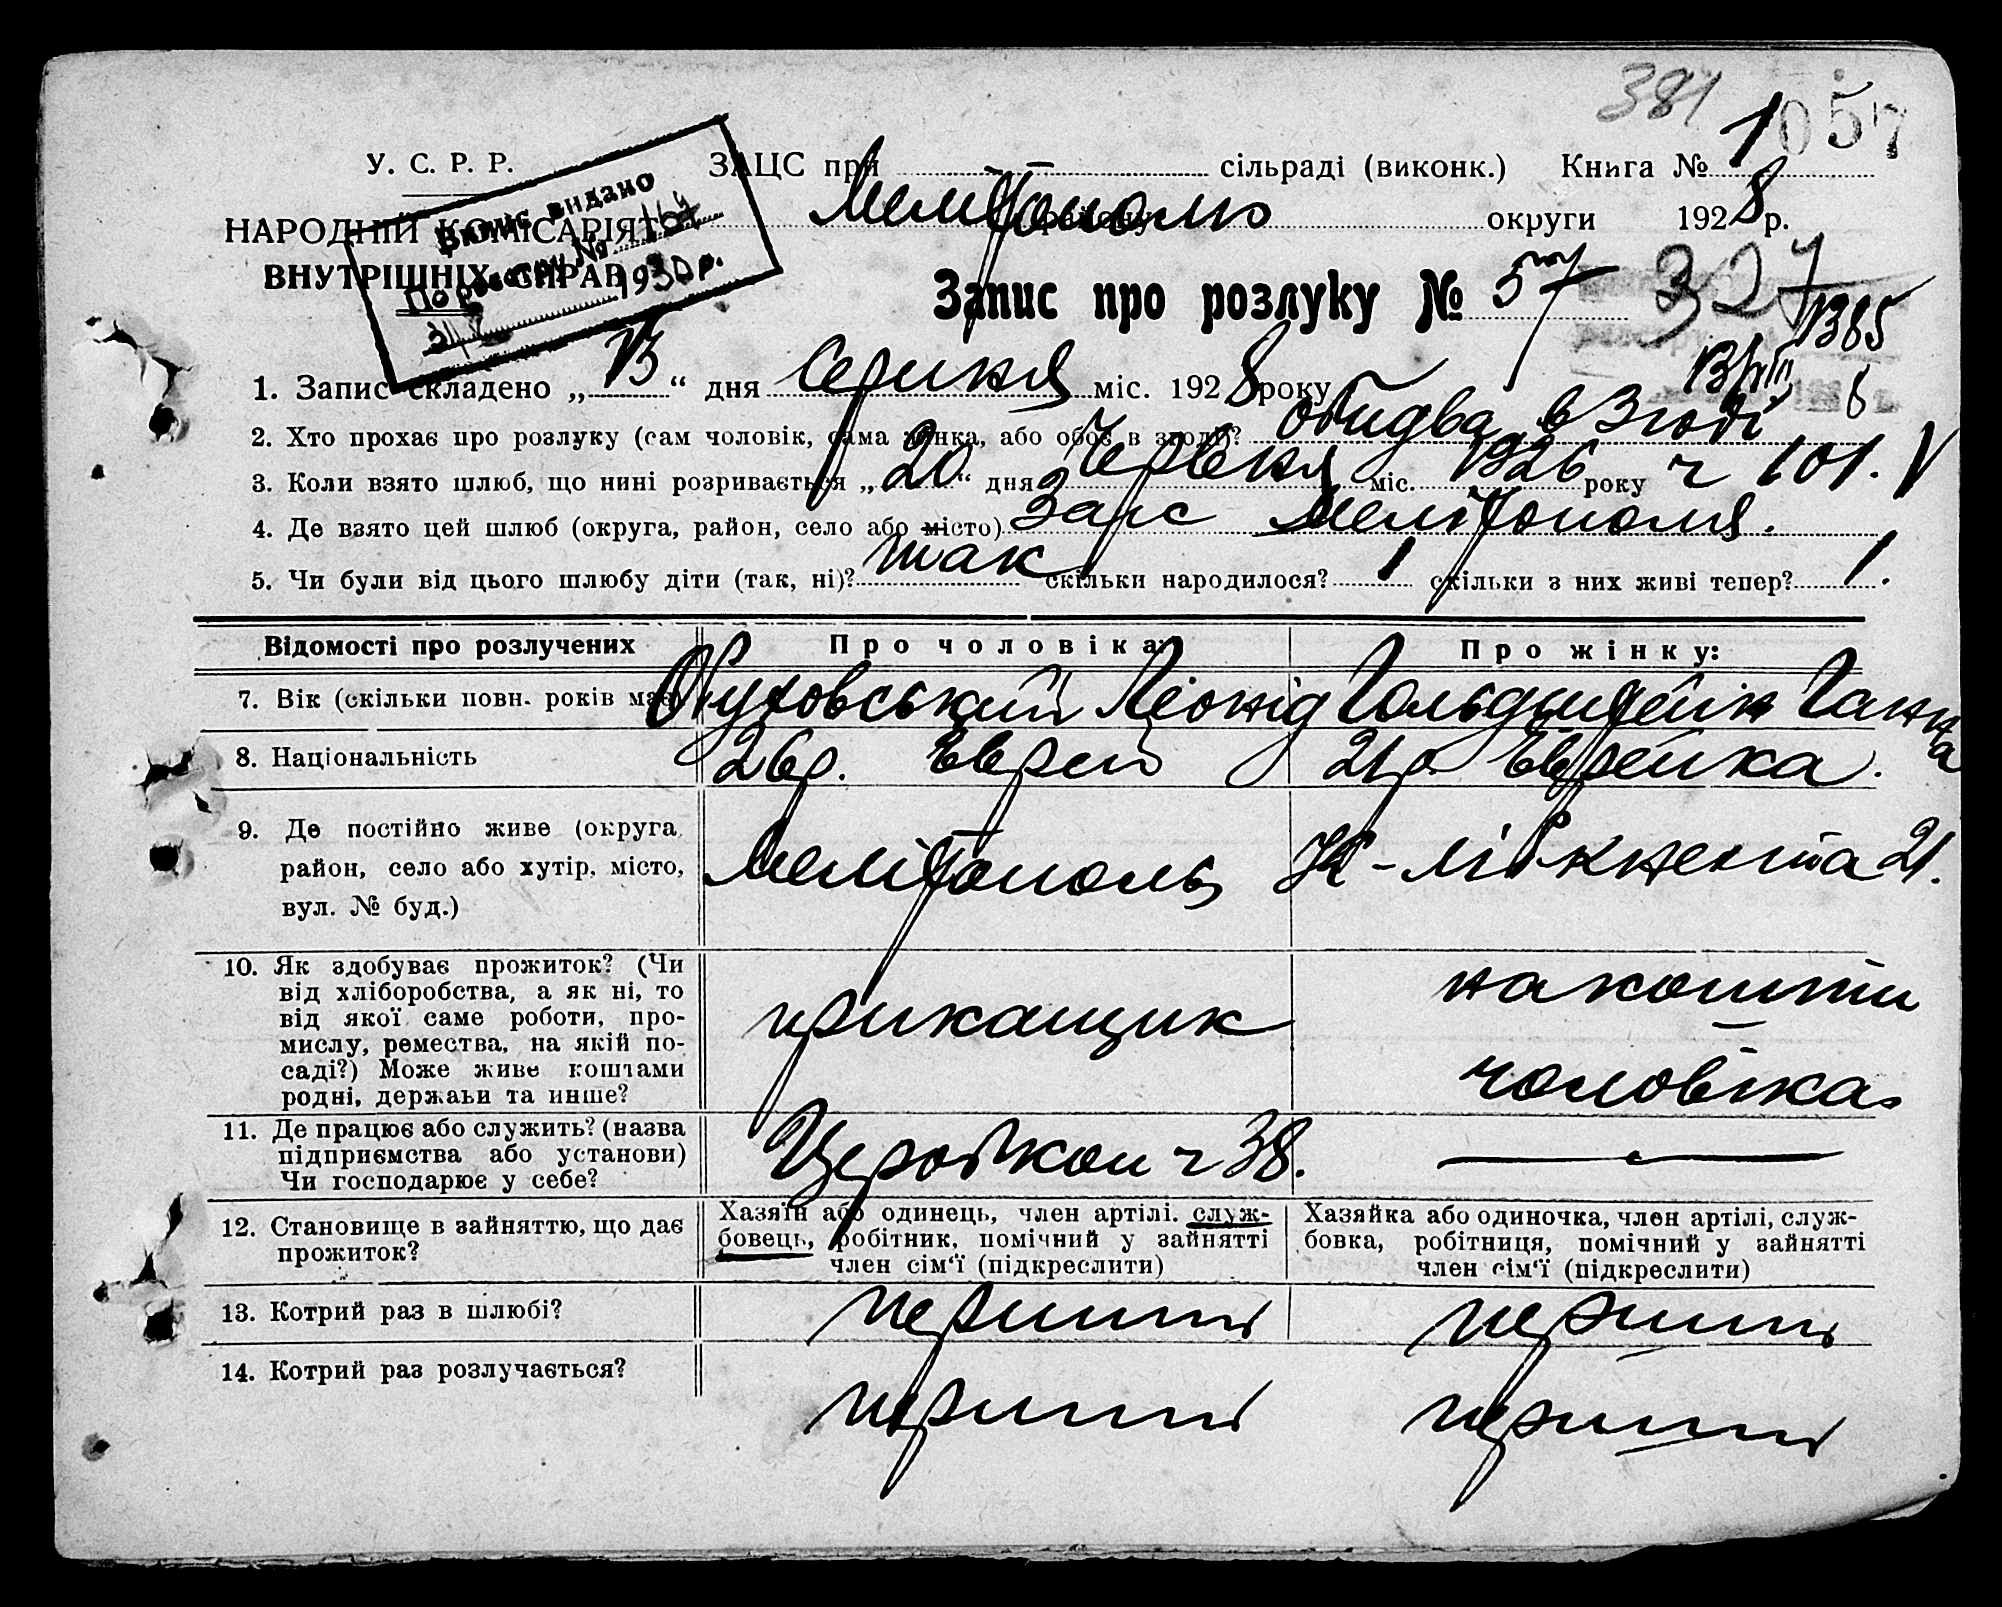 381
1057
У. С. Р. Р.
ЗАЦС при сільраді (виконк.) Книга № 1
НАРОДНІЙ КОМІСАРІЯТ
Мелітополю району округи 1928 р.
ВНУТРІШНІХ СПРАВ
Випис видано
По реєстру №
1930 р.
Запис про розлуку № 57 327
1385
13/VIII 8
1. Запис складено „13“ дня Серпня міс. 1928 року
2. Хто прохає про розлуку (сам чоловік, сама жінка, або обоє в згоді)? обидва в Згоді
3. Коли взято шлюб, що нині розривається „20“ дня Червня міс. 1926 року ч 101. V
4. Де взято цей шлюб (округа, район, село або місто) Загс Мелітополя.
5. Чи були від цього шлюбу діти (так, ні)? так скільки народилося? 1 скільки з них живі тепер? 1.
Відомості про розлучених Про чоловіка: Про жінку:
7. Вік (скільки повн. років має) Леонід Гольдштейн Ганна
8. Національність 26р. Еврей 21р Еврейка.
9. Де постійно живе (округа,
район, село або хутір, місто,
вул. № буд.)
Мелітополь К-Лібкнехта 21.
10. Як здобуває прожиток? (Чи
від хліборобства, а як ні, то
від якої саме роботи, про-
мислу, ремества, на якій по-
саді?) Може живе коштами
родні, держави та инше?
прикащик
на кошти
чоловіка
11. Де працює або служить? (назва
підприємства або установи)
Чи господарює у себе?
Церобкоп ч 38.
12. Становище в зайняттю, що дає
прожиток?
Хазяїн або одинець, член артілі, служ-
бовець, робітник, помічний у зайнятті
член сім'ї (підкреслити)
Хазяйка або одиночка, член артілі, служ-
бовка, робітниця, помічний у зайнятті
член сім'ї (підкреслити)
13. Котрий раз в шлюбі? перший перший
14. Котрий раз розлучається? перший перший